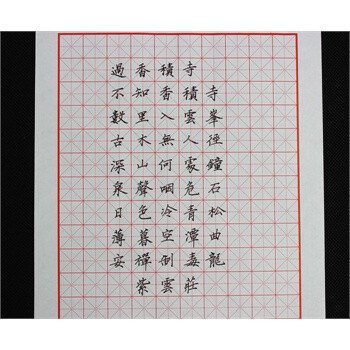 過香積寺
不知香積寺
數里入雲峯
古木無人徑
深山何處鐘
泉聲咽危石
日色冷青松
薄暮空潭曲
安禪制毒龍
紫雲莊